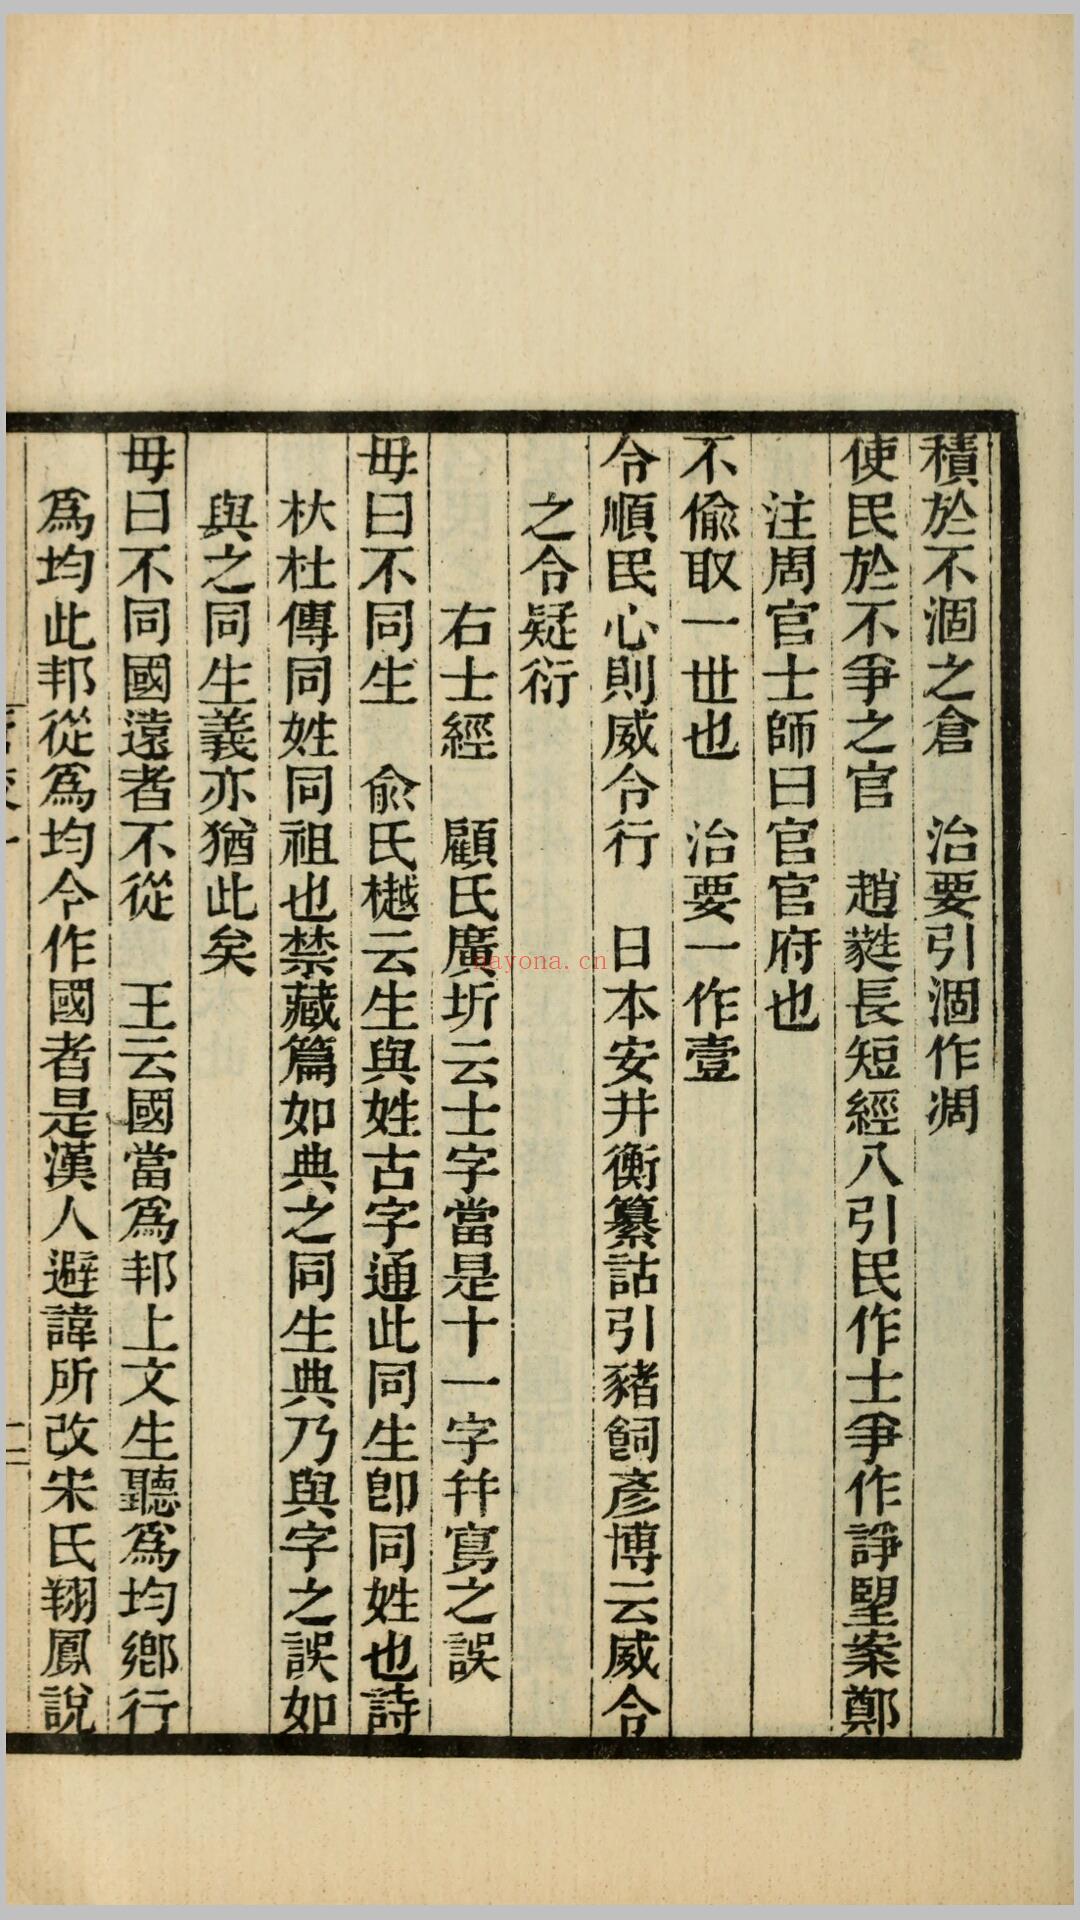 積於不涸之倉　治要引涸作凋
使民於不爭之官　趙蕤長短經八引民作士爭作諍朢案鄭
注周官士師曰官官府也
不偷取一世也　治要一作壹
令順民心則威令行　日本安井衡纂詁引豬飼彥博云威令
之令疑衍
右士經　顧氏廣圻云士字當是十一字幷寫之誤
毋曰不同生　俞氏樾云生與姓古字通此同生卽同姓也詩
杕杜傳同姓同祖也禁藏篇如典之同生典乃與字之誤如
與之同生義亦猶此矣
毋曰不同國遠者不從　王云國當爲邦上文生聽爲均鄉行
爲均此邦從爲均今作國者是漢人避諱所改宋氏翔鳳說
nayona.cn